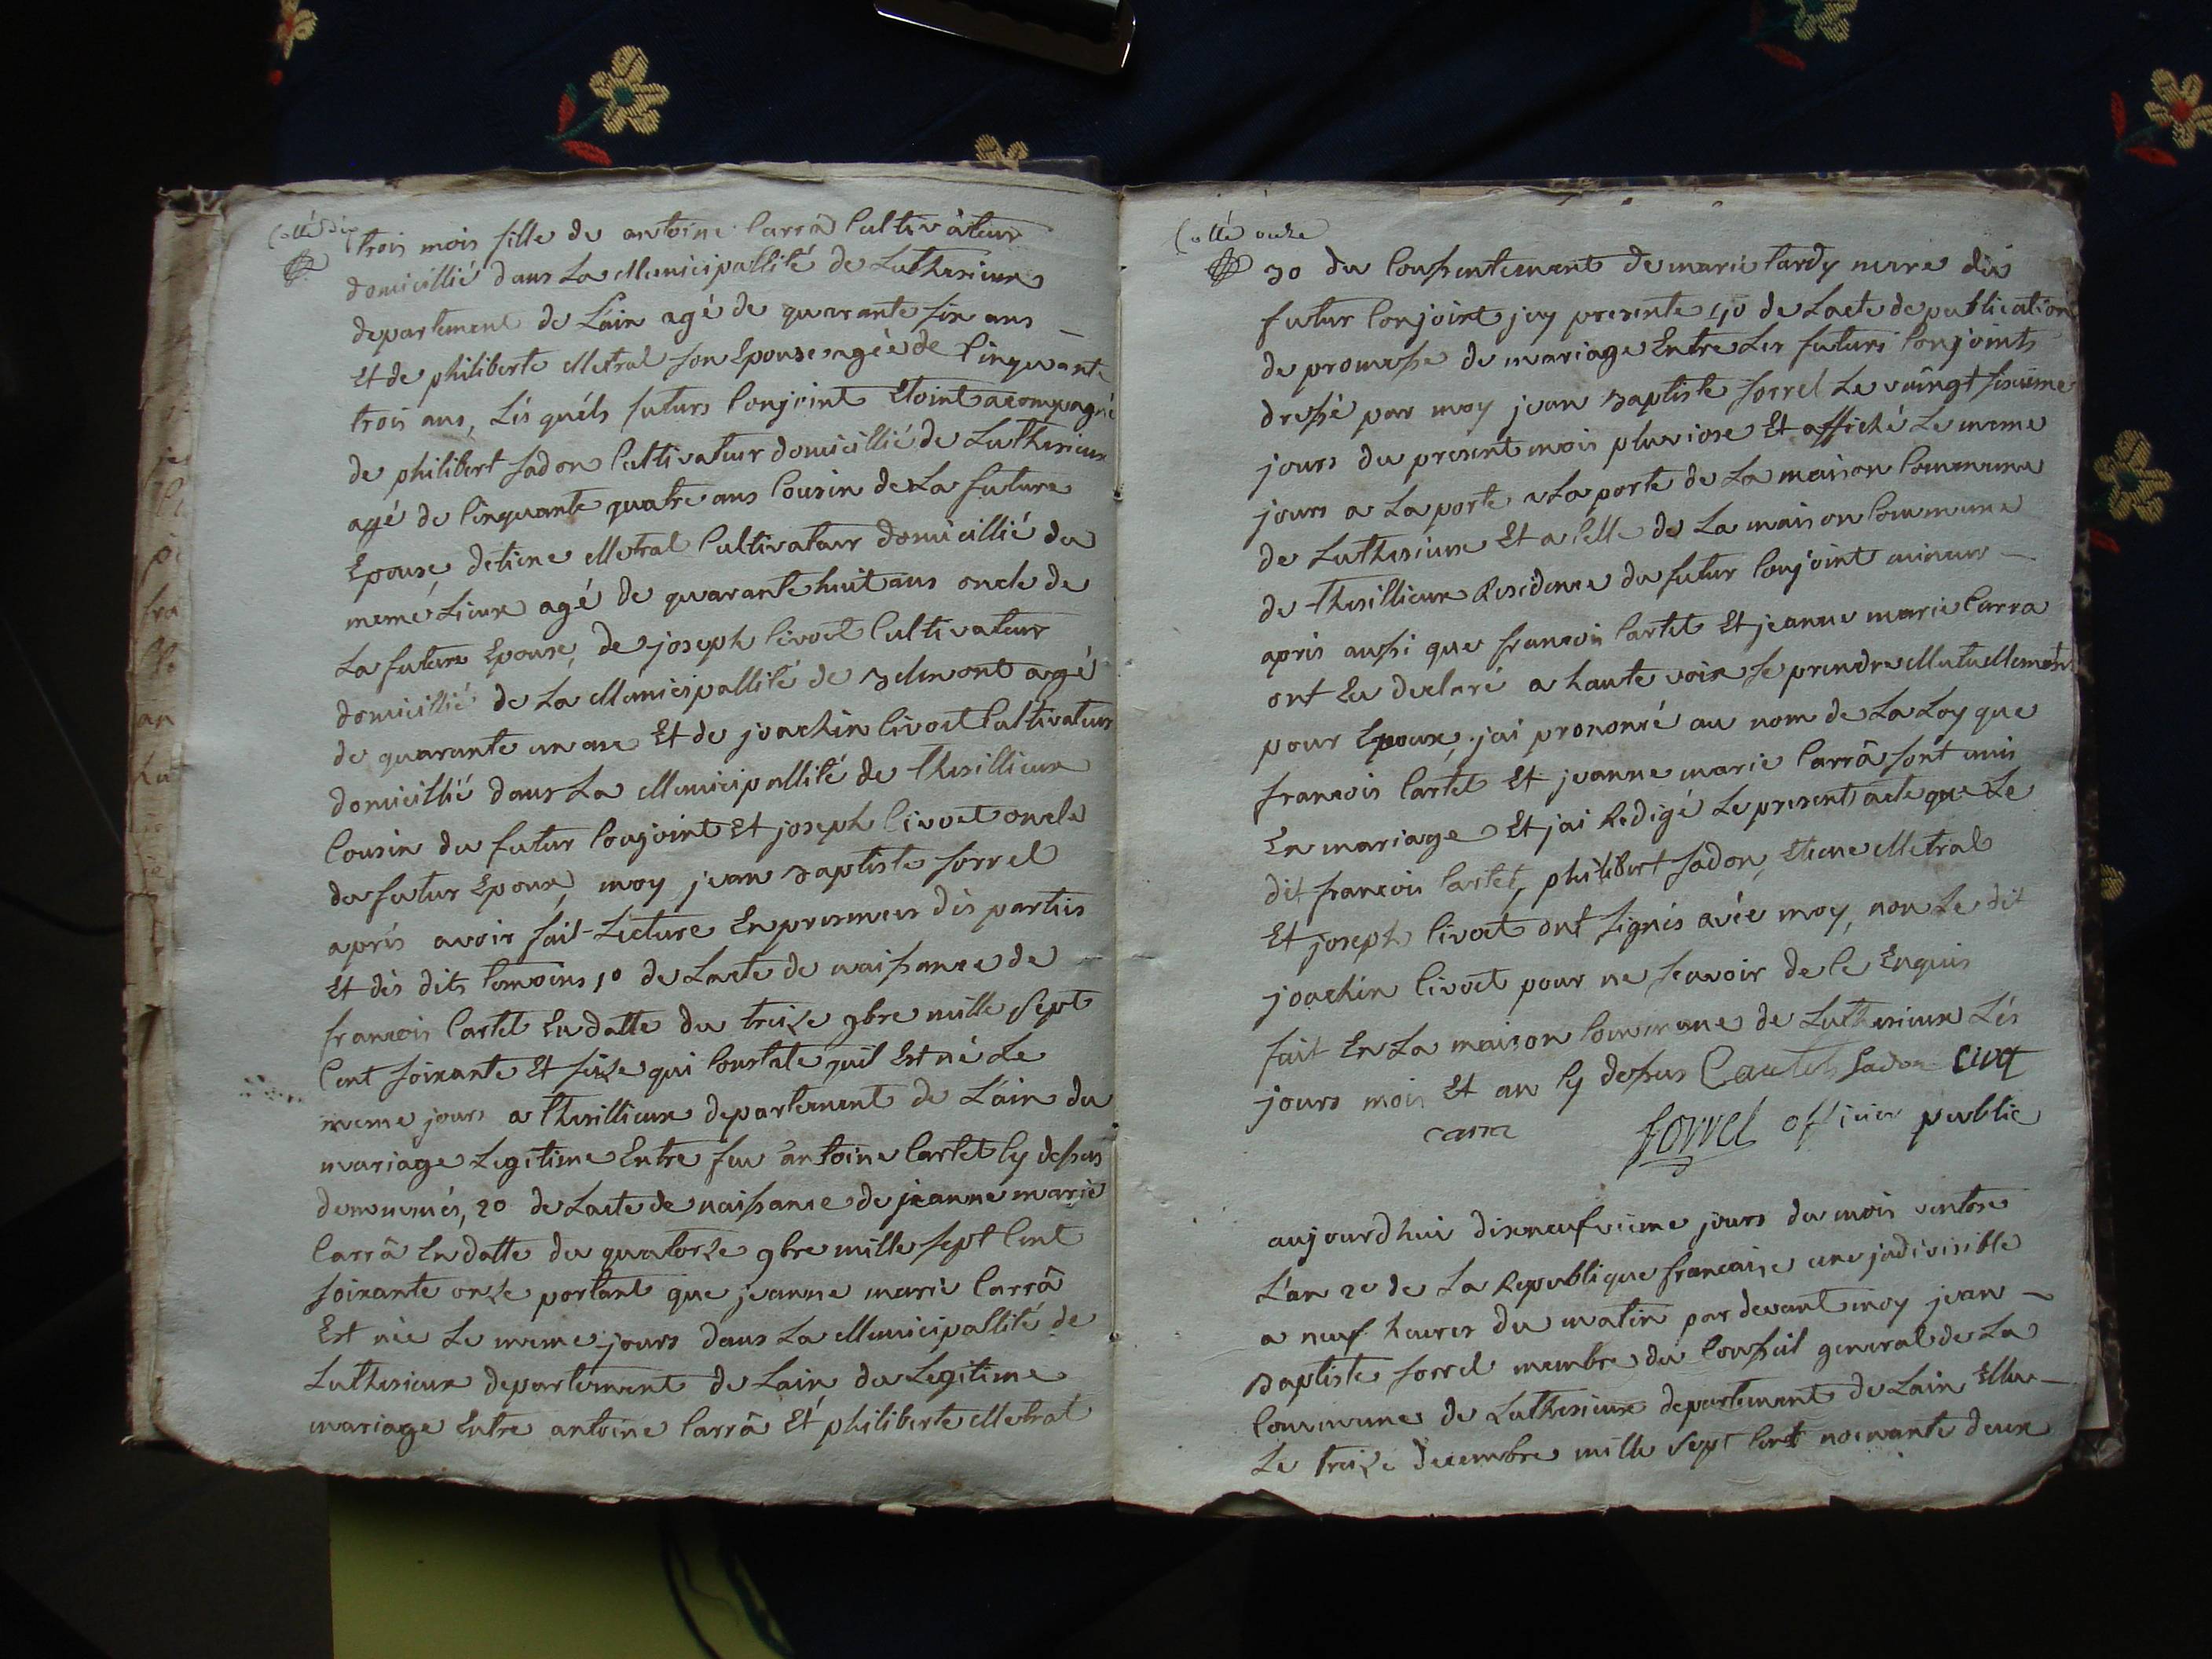 Cotté dix
trois mois fille de antoine Carrâ Cultivâteur
domicillié dans La Municipallité de Luthezieux
departement de L'ain agé de quarante six ans
Et de philiberte Metral son Epouse agée de Cinquante
trois ans, Lés quéls futurs Conjoint Etoint acompagné
de philibert sadon Cultivateur domicillié de Luthezieux
agé de Cinquante quatre ans Cousin de La future
Epouse, detiene Metral Cultivateur domicillié du
meme Lieux agé de quarante huit ans oncle de
La future Epouse, de joseph Civoct Cultivateur
domicillié de La Municipallité de Belmont agé
de quarante un ans Et de joachin Civoct Cultivateur
domicillié dans La Municipallité de thezillieux
Cousin du futur Conjoint Et joseph Civoct oncle
du futur Epoux, moy jean Baptiste sorrel
aprés avoir fait Lecture En presences dés parties
Et dés dits temoins 1o de Lacte de naissance de
francois Cartet En datte du treize 9bre mille sept
Cent soixante Et seize qui Constate quil Est né Le
meme jours a thezillieux departement de L'ain du
mariage Legitime Entre feu antoine Cartet Cy dessus
denommés, 2o de Lacte de naissance de jeanne marie
Carrâ En datte du quatorze 9bre mille sept Cent
soixante onze portant que jeanne marie Carrâ
Est née Le meme jours dans La Municipallité de
Luthezieux departement de Lain du Legitime
mariage Entre antoine Carrâ Et philiberte Metral
Cotté onze
3o du Consentement de marie tardy mere du
futur Conjoint jcy presente 4o de Lacte de publication
de promesse de mariage Entre Les futurs Conjoints
dressé par moy jean Baptiste sorrel Le vaingt sixieme
jours du present mois pluviose Et affiché Le meme
jours a La porte a La porte de La maison Commune
de Luthezieux Et a Celle de La maison Commune
de thezillieux Residence du futur Conjoint mineur
aprés aussi que francois Cartet Et jeanne marie Carra
ont Eu declaré a haute voix se prendre Mutuellement
pour Epoux, jai prononcé au nom de La Loy que
francois Cartet Et jeanne marie Carrâ sont unis
En mariage Et jai Redigé Le present acte que Le
dit francois Cartet, philibert sadon, Etiene Metral
Et joseph Civoct ont signés avéc moy, non Le dit
joachin Civoct pour ne scavoir de Ce Enquis
fait En La maison Commune de Luthezieux Lés
jours mois Et an Cy dessus Cartet Sadon
carra sorrel officier public
aujourdhui dixneufvieme jours du mois ventose
L'an 2e de La Republique francaise une jndivisible
a neuf heures du matin par devant moy jean
Baptiste sorrel membre du Conseil general de La
Commune de Luthezieux departement de Lain Elu
Le treize decembre mille sept Cent nonante deux